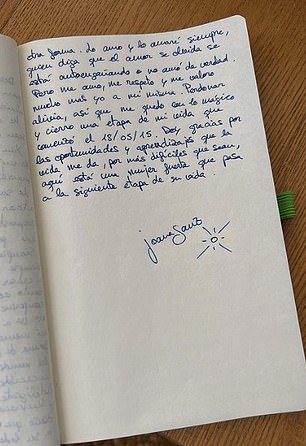 otra forma. Lo amo y lo amaré siempre,
quien diga que el amor se olvida se
está autoengañando o no amó de verdad.
Pero me amo, me respeto y me valoro
mucho más yo a mi misma. Perdonar
alivia, así que me quedo con lo mágico
y cierro una etapa de mi vida que
comenzó el 18/05/15. Doy gracias por
las oportunidades y aprendizajes que la
vida me da, por más difíciles que sean,
aquí está una mujer fuerte que pasa
a la siguiente etapa de su vida.
Joana Sanz